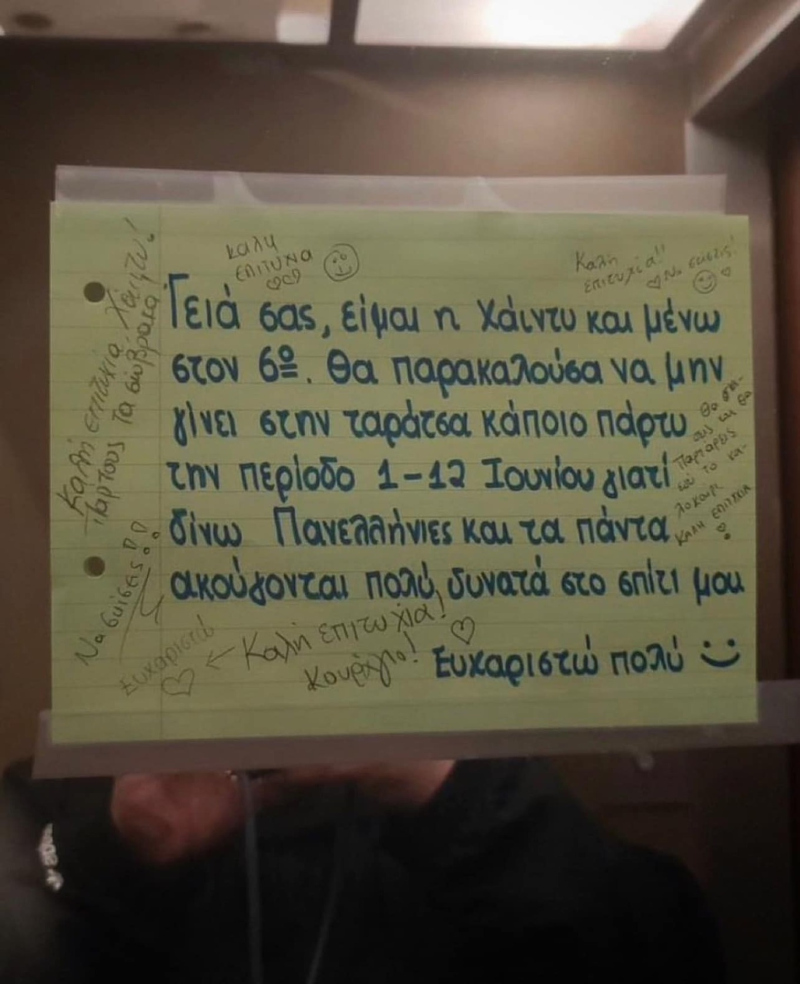 καλη
επιτυχια
Καλή
επιτυχία!!
Να σκίσεις!
Γειά σας, είμαι η Χάιντυ και μένω
στον 6º. Θα παρακαλούσα να μην
γίνει στην ταράτσα κάποιο πάρτυ
την περίοδο 1-12 Ιουνίου γιατί
δίνω Πανελλήνιες και τα πάντα
ακούγονται πολύ δυνατά στο σπίτι μου
Ευχαριστώ πολύ :)
Καλή επιτυχία Χάιντυ!
Παρτους τα σωβρακα
Να σκίσεις!!
Ευχαριστώ
← Καλή επιτυχία!
Κουράγιο!
Θα
παρταρεις
το κα-
λοκαιρι
καλη επιτυχια
!